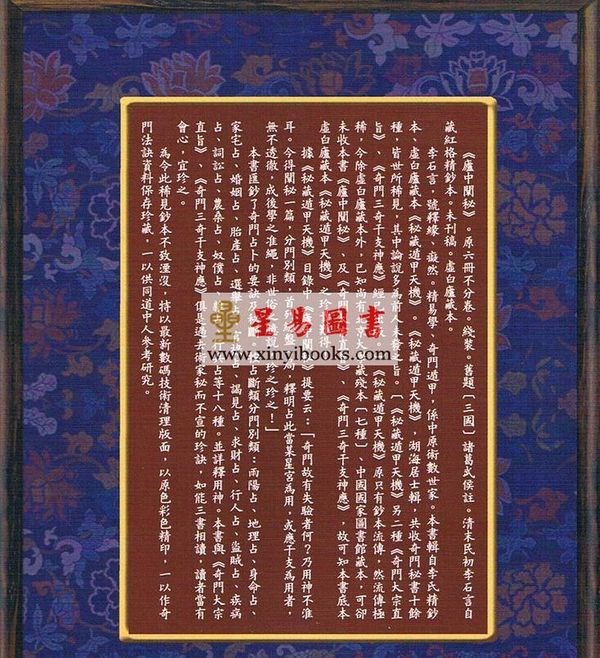 《廬中闡秘》。原六冊不分卷。綫裝。舊題〔三國〕諸葛武侯註。清末民初李石言自
藏紅格精鈔本。未刊稿。虛白廬藏本。
李石言，號釋緣、凝然。精易學、奇門遁甲，係中原術數世家。本書輯自李氏精鈔
本，虛白廬藏本《秘藏遁甲天機》，湖海居士輯，共收奇門秘書十餘
種，皆世所稀見，其中論說多為前人未發之旨。〔《秘藏遁甲天機》另二種《奇門大宗直
旨》、《奇門三奇干支神應》經已
《秘藏遁甲天機》原只有鈔本流傳，然流傳極
稀，今除虛白廬藏本外，已知尚有北京大
藏殘本〔七種〕、中國國家圖書館藏本，可卻
未收本書《廬中闡秘》、及《奇門
直旨》、《奇門三奇干支神應》，故可知本書底本
虛白廬藏本《秘藏遁甲天機》之珍
得
據《秘藏遁甲天機》目錄中
闡
》提要云：「奇門故有失驗者何？乃用神不准
耳。今得闡秘一篇，分門別類，首列
盤
局，釋明占此當某星宮為用，或應干支為用者，
無不透徹，成後學之準繩，非世俗
說
珍之珍之！」
本書匯鈔了奇門占卜的要訣乃
占斷類分門別類：雨陽占、地理占、身命占、
家宅占、婚姻占、胎產占、選舉
占、謁見占、求財占、行人占、盜賊占、疾病
占、詞訟占、農桑占、奴僕占
行
占等十八種。並詳釋用神。本書與《奇門大宗
直旨》、《奇門三奇干支神應》俱是過去術家秘而不宣的珍訣，如能三書相讀，讀者當有
會心，宜珍之。
為令此稀見鈔本不致湮沒，特以最新數碼技術清理版面，以原色彩色精印，一以作奇
門法訣資料保存珍藏，一以供同道中人參考研究。
星易圖書
www.xinyibooks.com